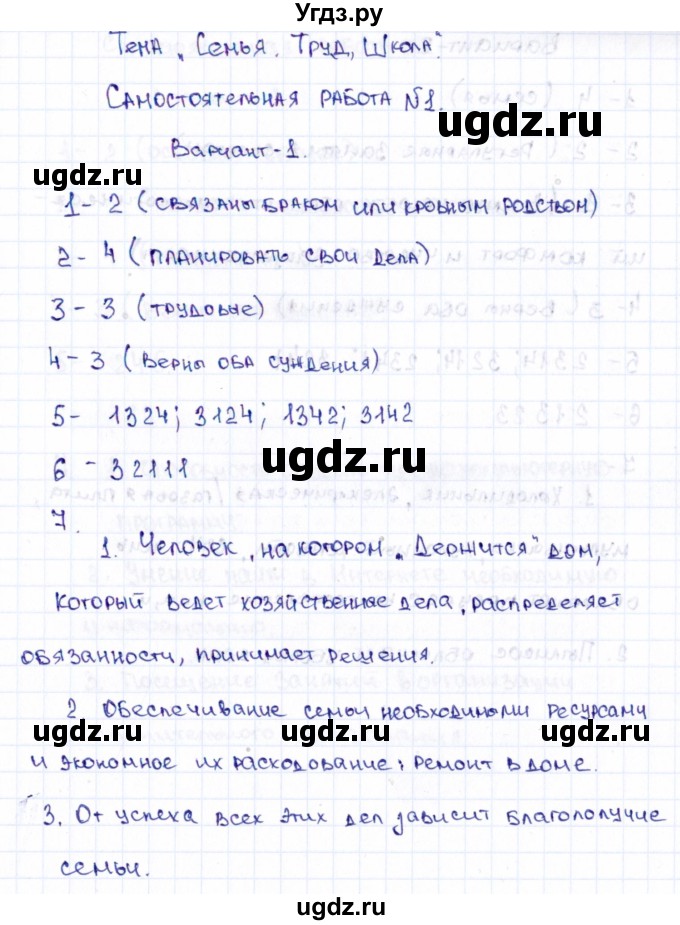 Угдз.ру
Тема „Семья. Труд, Школа".
Самостоятельная работа №1.
ugdz.ru
Вариант-1.
ugdz.ru
ugdz.ru
1- 2 (связаны браком или кровным родством)
2- 4 (планировать свои дела)
3 - 3 (трудовые)
ugdz.ru
4- 3 (верны оба сундения)
5- 1324; 3124; 1342; 3142
ugdz.ru
6 - 32111
7.
1. Человек, на котором „Держится" дом,
ugdz.ru
который ведет хозяйственные дела, распределяет
обязанности, принимает решения.
2. Обеспечивание семьи необходимыми ресурсами
ugdz.ru ugdz.ru ugdz.ru
и экономное их расходование; ремонт в доме.
3. От успеха всех этих дел зависит благополучие
семьи.
ugdz.ru